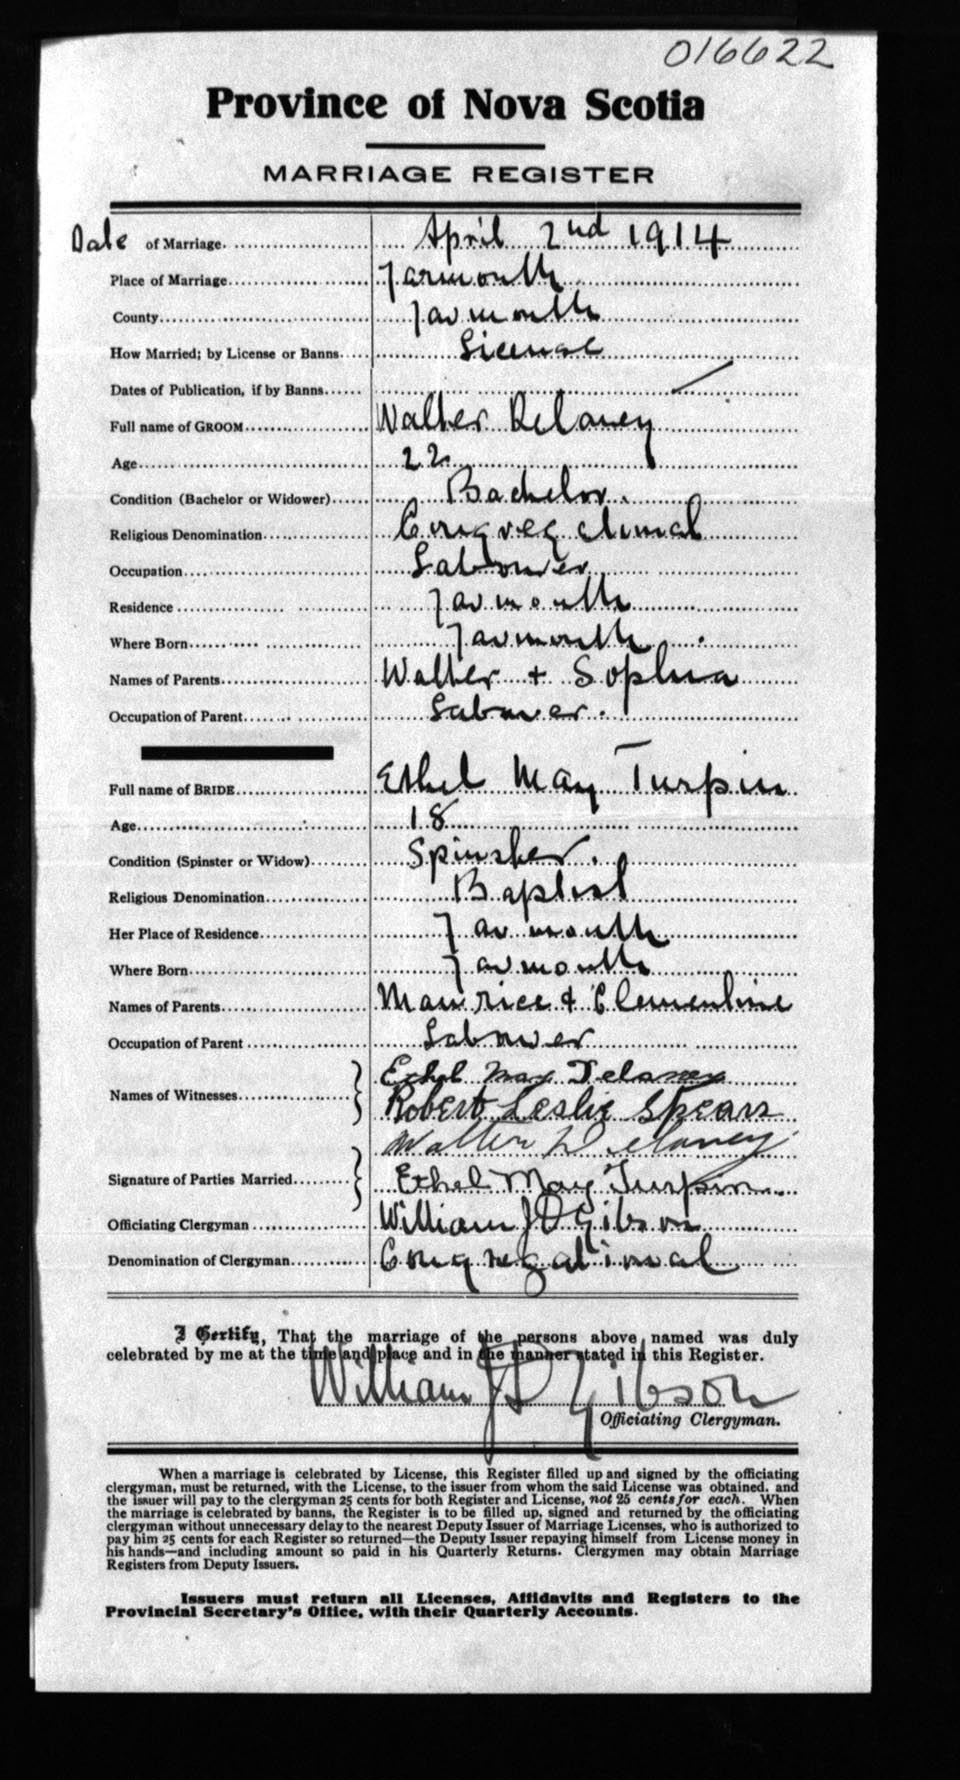 016622
Province of Nova Scotia
MARRIAGE REGISTER
Date of Marriage. April 2nd 1914
Place of Marriage Yarmouth
County Yarmouth
How Married; by License or Banns License
Dates of Publication, if by Banns
Full name of GROOM Walter Delaney
Age 22
Condition (Bachelor or Widower) Bachelor.
Religious Denomination Congregational
Occupation Labourer
Residence Yarmouth
Where Born Yarmouth.
Names of Parents Walter + Sophia
Occupation of Parent Labourer.
Full name of BRIDE Ethel May Turpin
Age 18
Condition (Spinster or Widow) Spinster.
Religious Denomination Baptist
Her Place of Residence Yarmouth
Where Born Yarmouth
Names of Parents Maurice & Clementine
Occupation of Parent Labourer
Ethel May Delaney
Names of Witnesses
Robert Leslie Spears
Walter Delaney
Signature of Parties Married Ethel May Turpin
Officiating Clergyman William J D Gibson
Denomination of Clergyman Congregational
I Certify, That the marriage of the persons above named was duly
celebrated by me at the time and place and in the manner stated in this Register.
William J D Gibson
Officiating Clergyman.
When a marriage is celebrated by License, this Register filled up and signed by the officiating
clergyman, must be returned, with the License, to the issuer from whom the said License was obtained. and
the issuer will pay to the clergyman 25 cents for both Register and License, not 25 cents for each. When
the marriage is celebrated by banns, the Register is to be filled up, signed and returned by the officiating
clergyman without unnecessary delay to the nearest Deputy Issuer of Marriage Licenses, who is authorized to
pay him 25 cents for each Register so returned—the Deputy Issuer repaying himself from License money in
his hands—and including amount so paid in his Quarterly Returns. Clergymen may obtain Marriage
Registers from Deputy Issuers.
Issuers must return all Licenses, Affidavits and Registers to the
Provincial Secretary's Office, with their Quarterly Accounts.